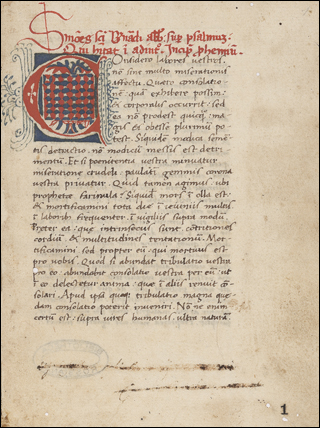 Smões sci Bnardi abb. sup psalmuz.
Qui hitat i adiut. Incip. phemiu.
Considero labores vestros
nō sine multo miserationis
affectu. Quero consolatio-
nē quā exhibere possim.
et corporalis occurrit. sed
ea nō prodest quicq; ma-
gis et obesse plurimū po-
test. Siquidē modica semē-
tis detractio. nō modicū messis est detri-
mentū. Et si poenitentia vestra minuatur
miseratione crudeli. paulatī gemmis corona
vestra privatur. Quid tamen agimus. ubi
prophete farinula. Siquid mors ī olla est.
et mortificamini tota die ī ieiuniis multis
ī laborib frequenter. ī vigiliis supra modū
preter ea que intrinsecus sunt. cōtritiones
cordiū. et multitudines tentationum. Mor-
tificamini. sed propter eū. qui mortuus est
pro vobis. Quod si abundat tribulatio vestra
pro eo. abundabit consolatio vestra per eū. ut
ī eo delectetur anima. que ī aliis renuit cō-
solari. Apud ipsā quoq; tribulatio magna que
dam consolatio poterit inveniri. Nōne enim
certū est. supra vires humanas. ultra naturā.
1